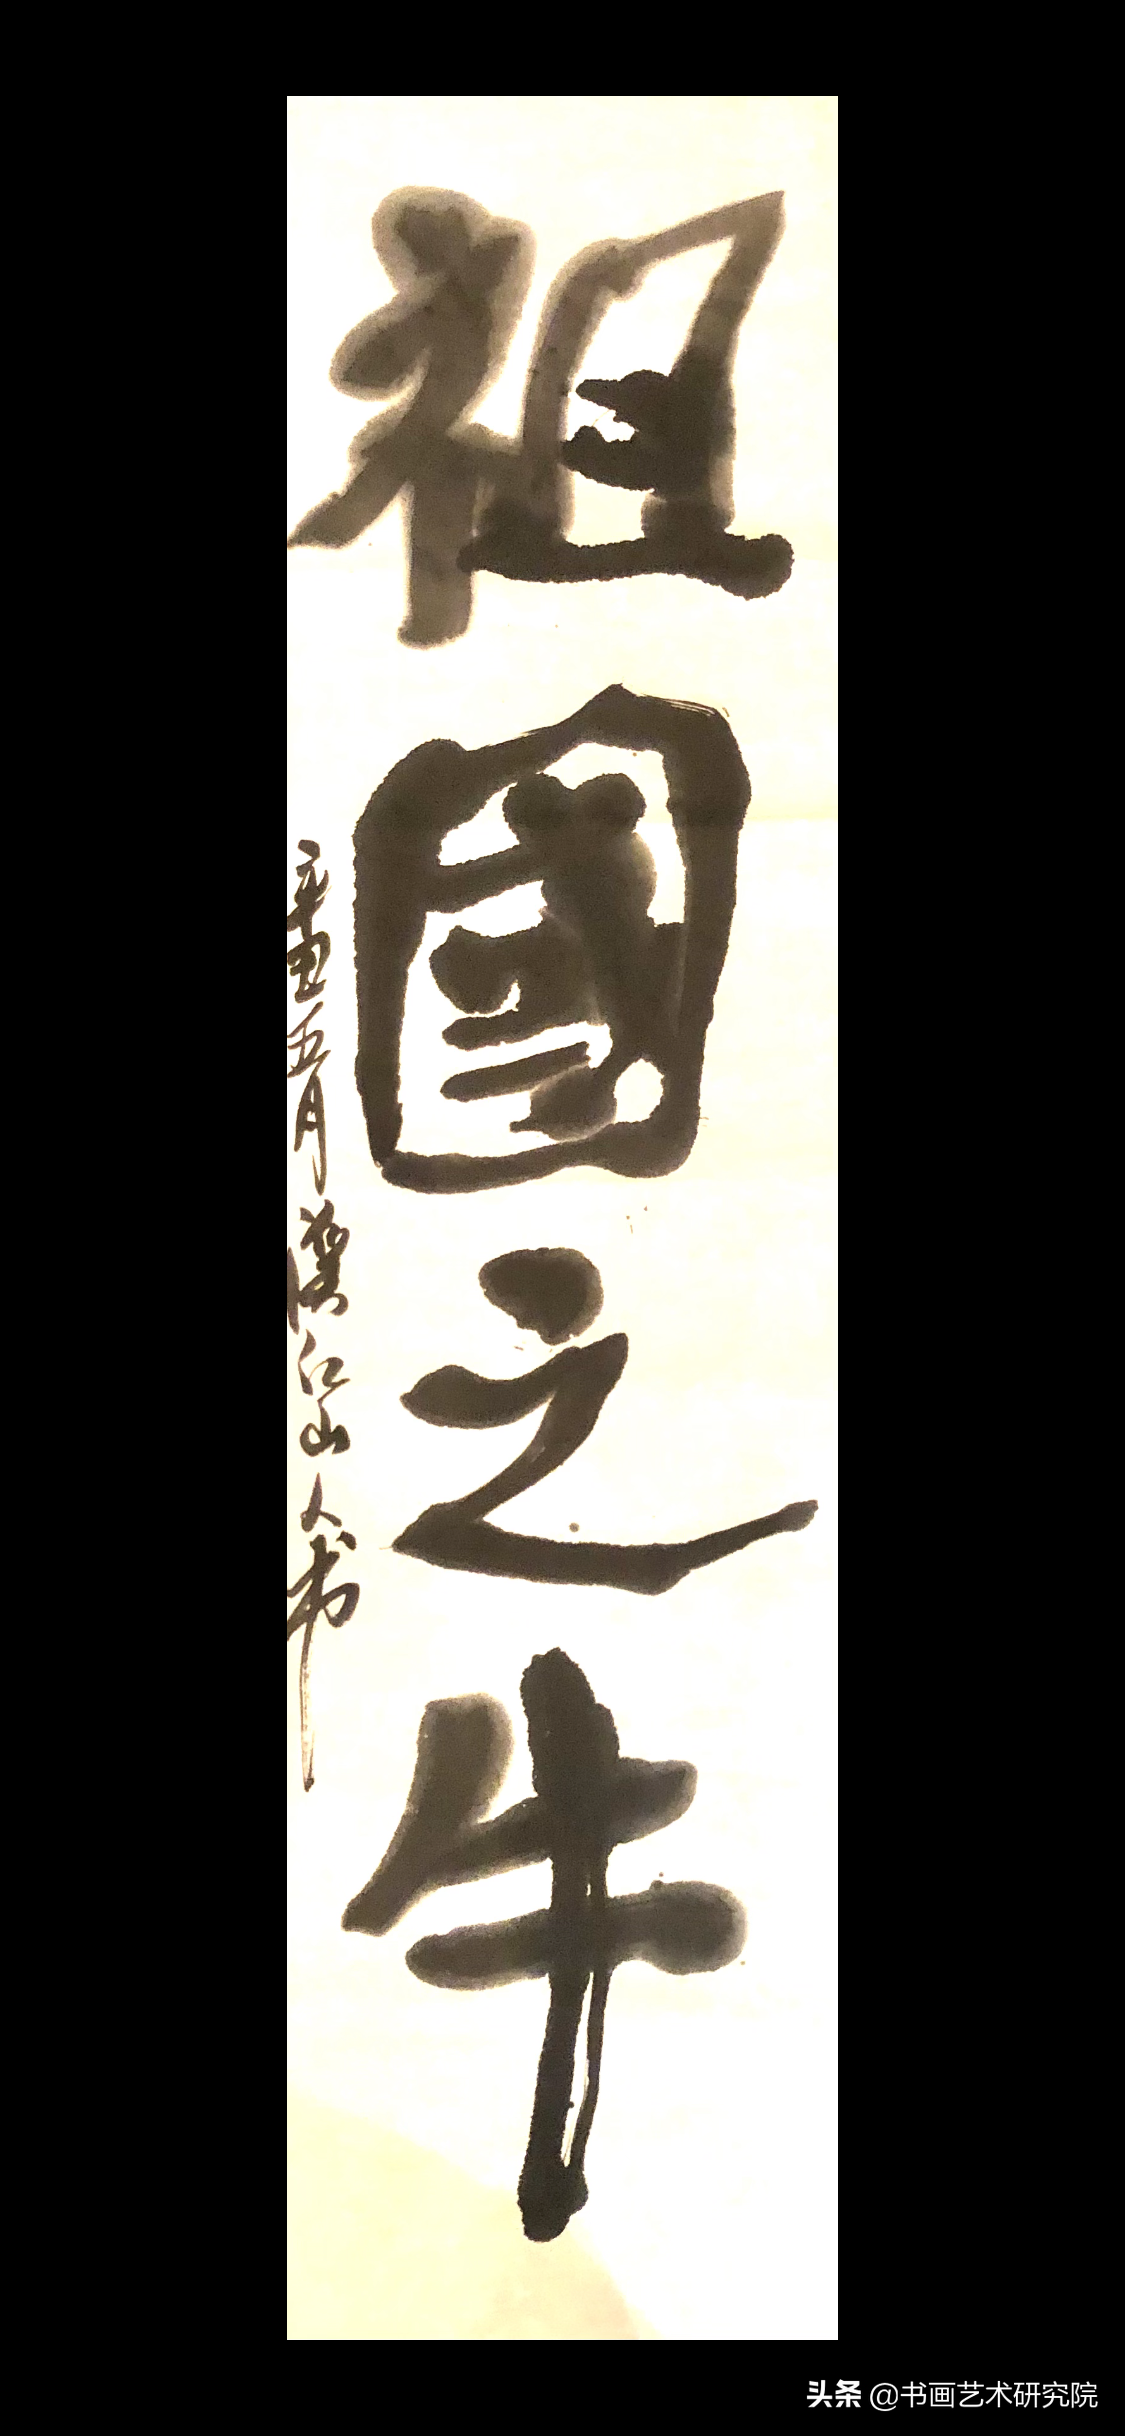 祖國之牛
辛丑五月漢江山人书
头条 @书画艺术研究院